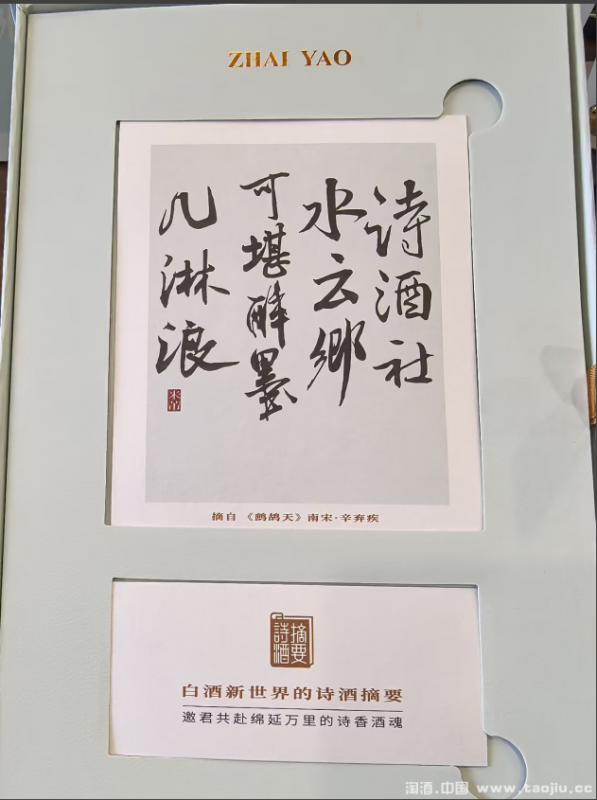 ZHAI YAO
诗酒社
水云乡
可堪醉墨
几淋浪
米芾
摘自《鹧鸪天》南宋·辛弃疾
摘要
詩酒
白酒新世界的诗酒摘要
邀君共赴绵延万里的诗香酒魂
淘酒.中国 www.taojiu.cc